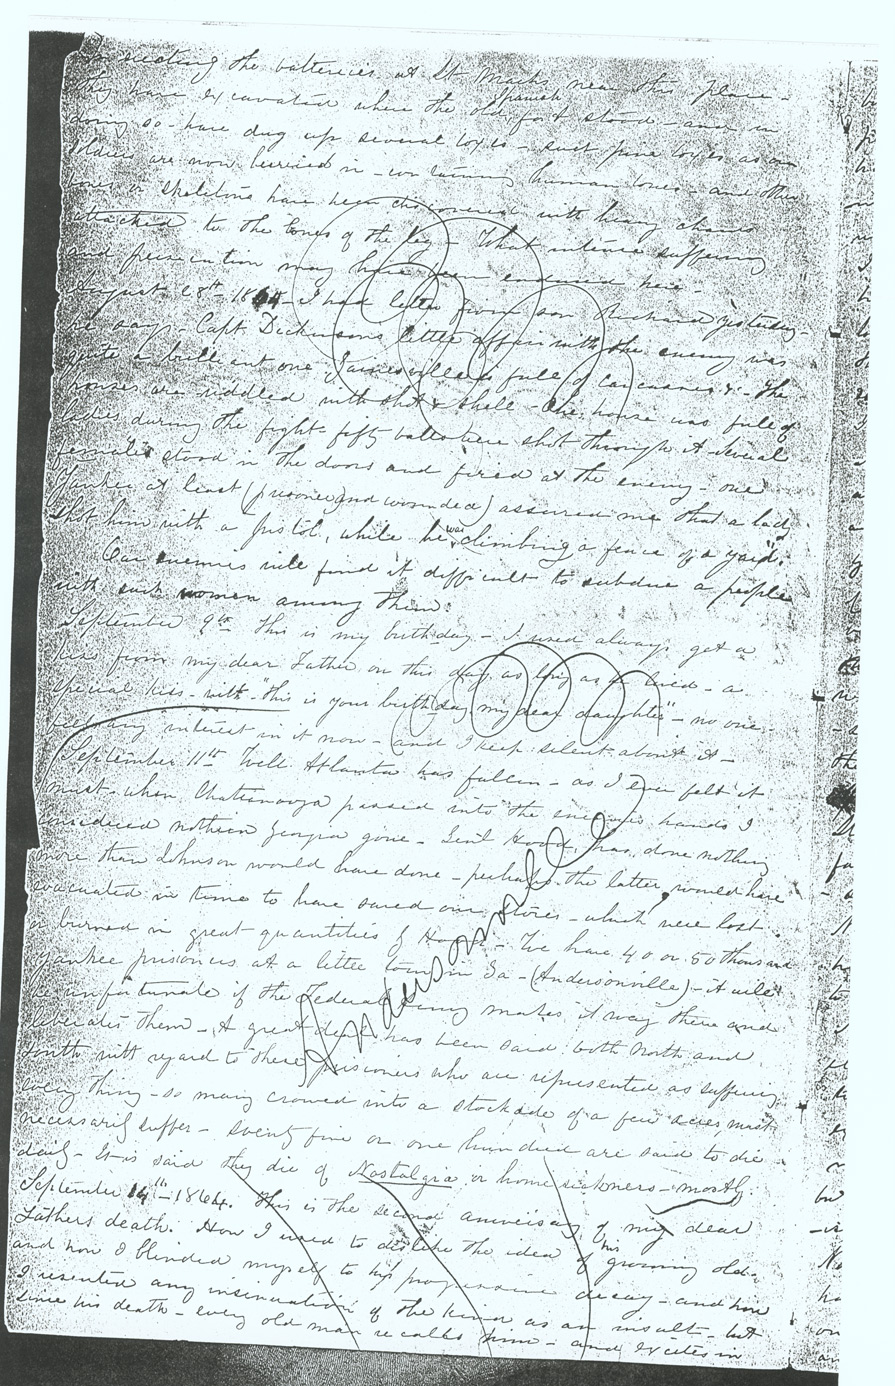 the batteries at St Marks near this place -
they have excavated where the old Spanish fort stood - and in
doing so - have dug up several boxes - just pine boxes as our
soldiers are now burried in - containing human bones - and other
bones or skeletons have been discovered with heavy chains
attached to the bones of the leg - What intense suffering
and persecution may have been endured here -
August 28th 1864 - I had letter from son Richard yesterday -
he says - Capt. Dickinsons little affair with the enemy was
quite a brilliant one Gainesville is full of carcasses &c - The
houses are riddled with shot & shell - One house was full of
ladies during the fight - fifty balls were shot through it several
females stood in the doors and fired at the enemy - one
Yankee at least (prisoner and wounded) assured me that a lady
shot him with a pistol, while he was climbing a fence of a yard.
Our enemies will find it difficult to subdue a people
with such women among them.
September 9th This is my birthday - I used always get a
kiss from my dear Father on this day as long as he lived - a
special kiss - with "this is your birthday my dear daughter" - no one
feels any interest in it now - and I keep silent about it -
September 11th Well Atlanta has fallen - as I ever felt it
must - when Chattanooga passed into the enemies hands I
considered nothern Georgia gone - Genl Hood has done nothing
more than Johnson would have done - perhaps the latter would have
evacuated in time to have saved our stores - which were lost
or burned in great quantities by Hood - We have 40 or 50 thousand
yankee prisoners at a little town in Ga - (Andersonville) - it will
be unfortunate if the Federal army makes it way there and
liberates them - A great deal has been said both North and
South with regard to these prisoners who are represented as suffering
every thing - so many crowed into a stockade of a few acres, must
necessarily suffer - seventy five or one hundred are said to die
daily - It is said they die of Nostalgia or home sickness - mostly.
Andersonville
September 14th - 1864. This is the second aniversary of my dear
Fathers death. How I used to dislike the idea of his growing old -
and how I blinded myself to his progressive decay - and how
I resented any insinuation of the kind as an insult - but
since his death - every old man recalls him - and excites in